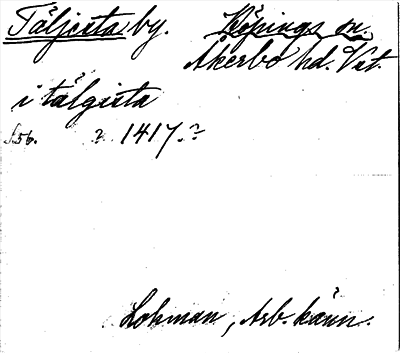 Täljesta by. Köpings sn.
Åkerbo hd. Vst.
i tälgista
f. 56. ? 1417. ?
Lohman, Arb. känn.